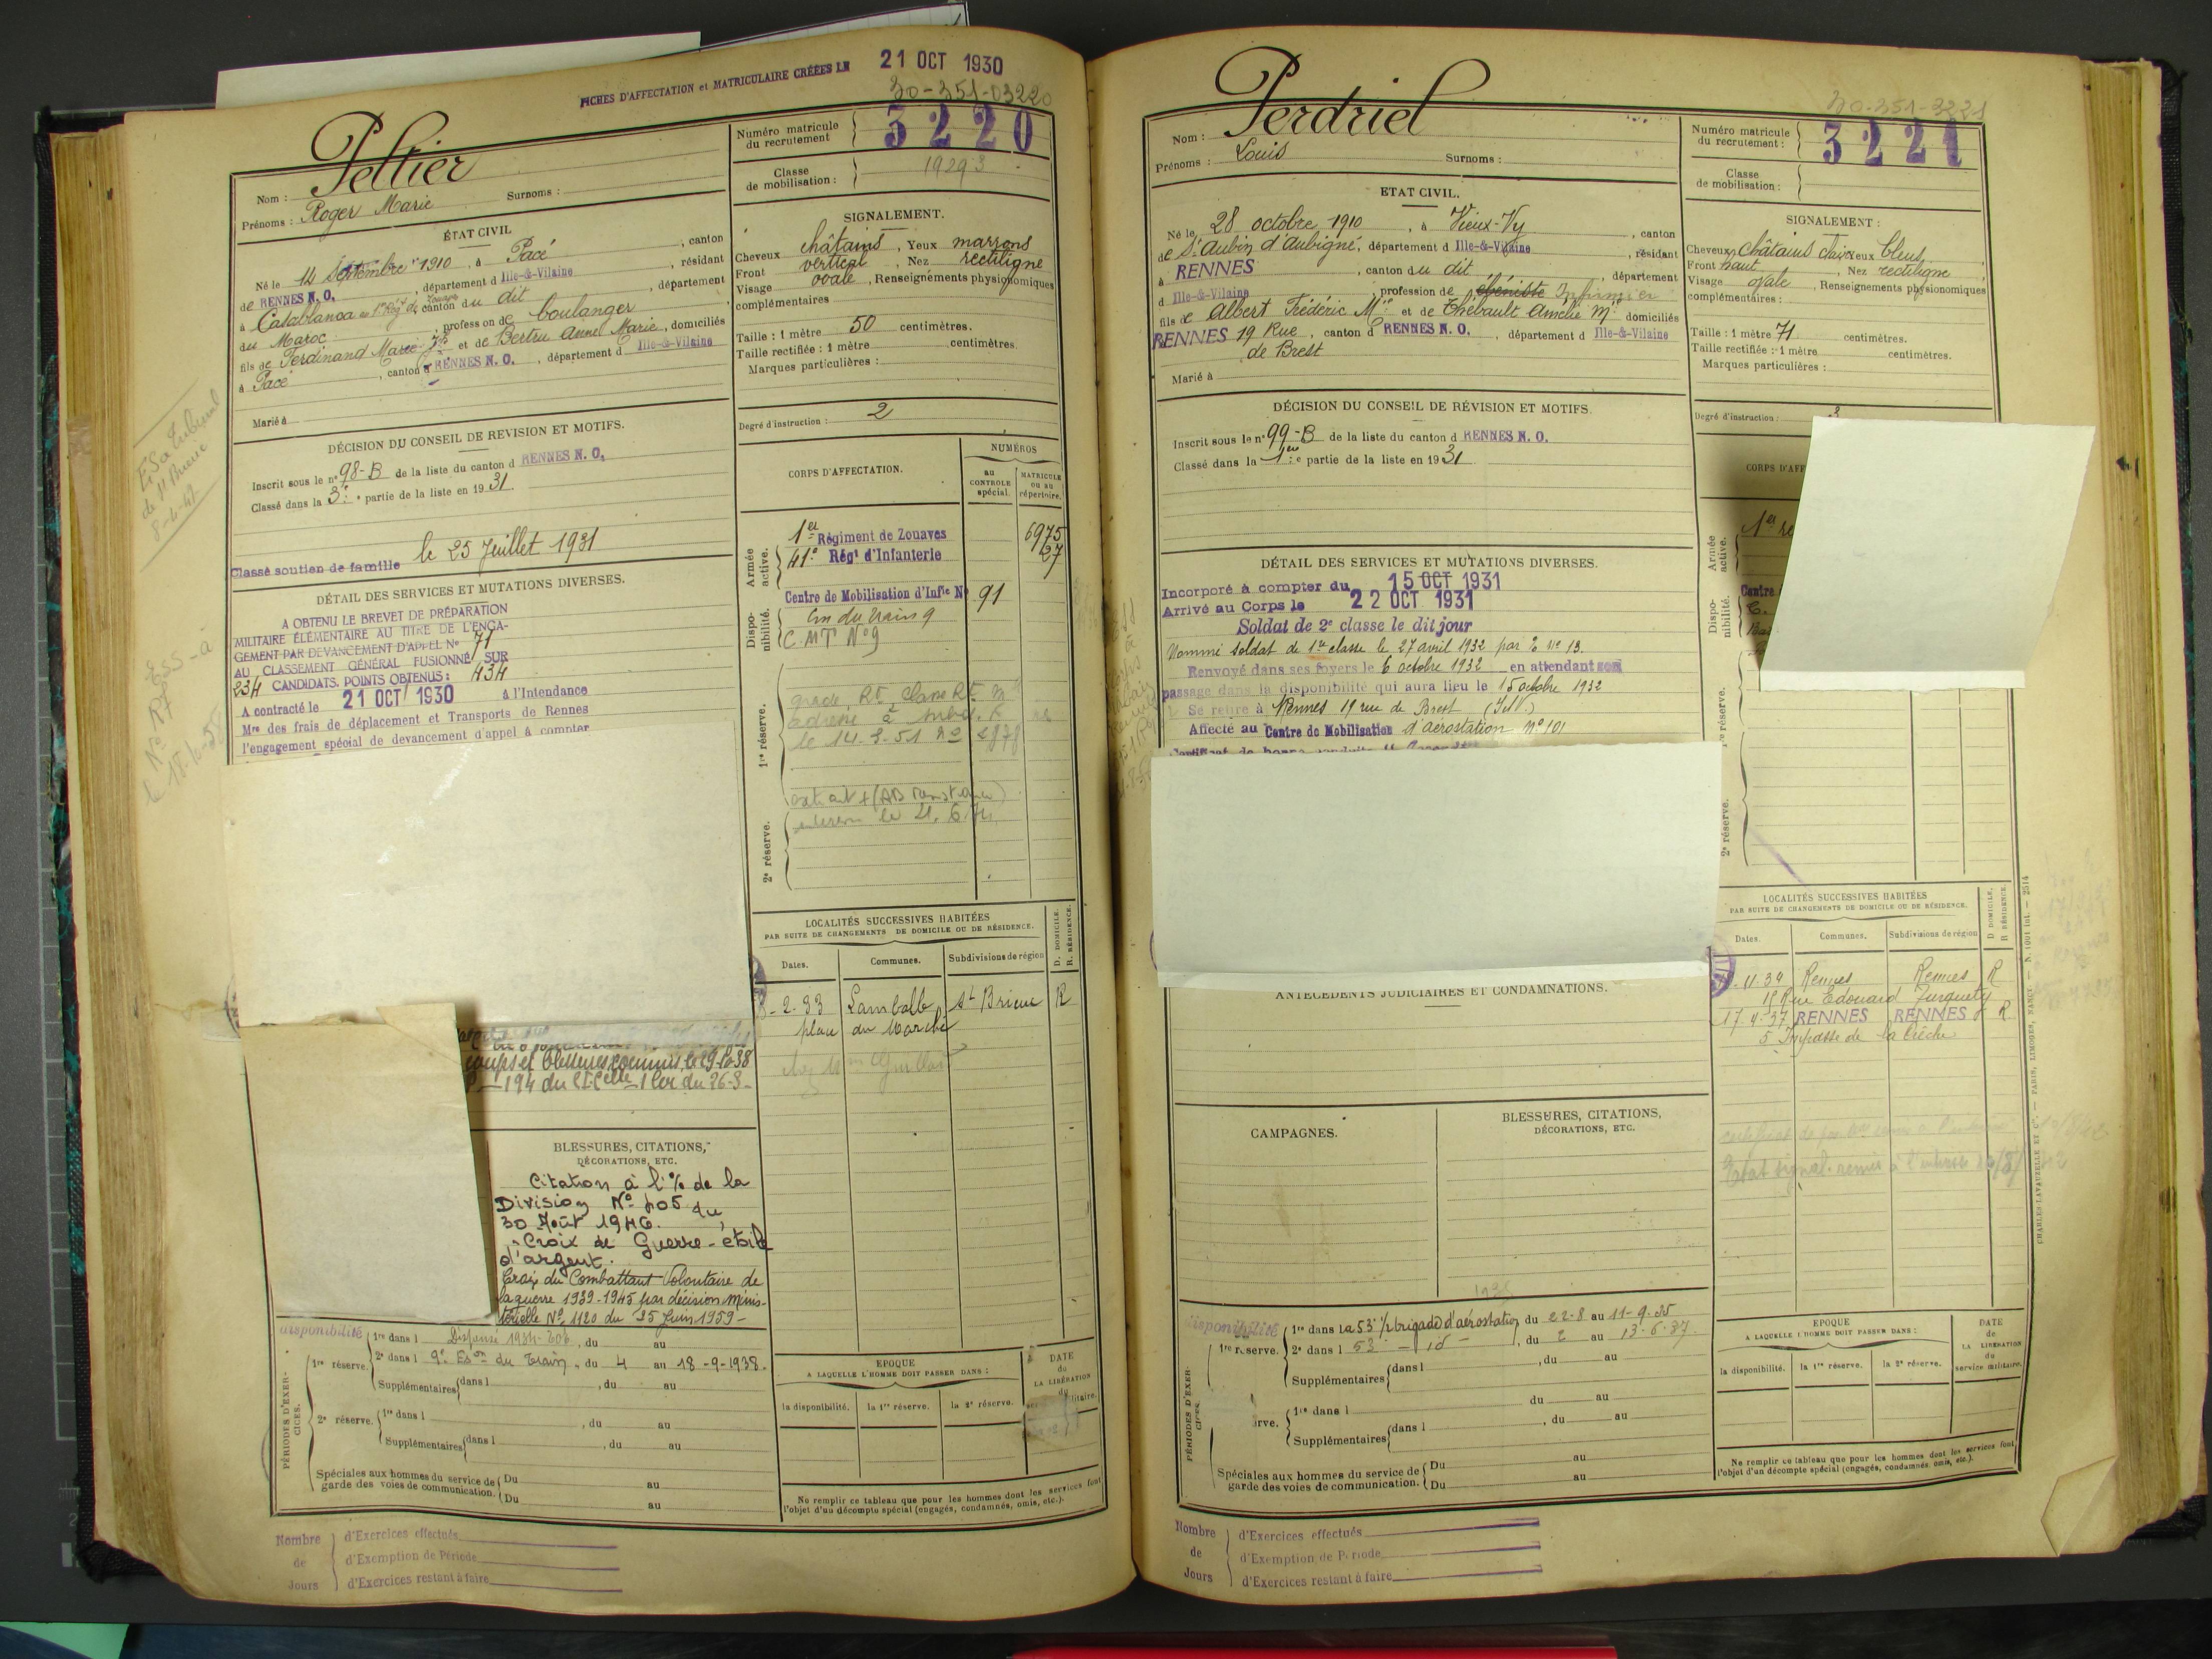 FICHES D'AFFECTATION et MATRICULAIRE CRÉÉES LE 21 OCT 1930
30-351-03220
Nom : Peltier
Prénoms : Roger Marie Surnoms :
Numéro matricule du recrutement 3220
Classe de mobilisation :
ÉTAT CIVIL
Né le 14 Septembre 1910, à Pacé, canton
de RENNES N. O., département d Ille-&-Vilaine, résidant
à Casablanca au 1er Régt de Zouaves canton du dit, département
du Maroc, profession de boulanger
fils de Ferdinand Marie Jh et de Bertru Anne Marie, domiciliés
à Pacé, canton d RENNES N. O., département d Ille-&-Vilaine
Marié à
SIGNALEMENT.
Cheveux châtains, Yeux marrons
Front vertical, Nez rectiligne
Visage ovale, Renseignements physionomiques
complémentaires
Taille : 1 mètre 50 centimètres.
Taille rectifiée : 1 mètre centimètres.
Marques particulières :
Degré d'instruction : 2
DÉCISION DU CONSEIL DE REVISION ET MOTIFS.
Inscrit sous le n° 98-B de la liste du canton d RENNES N. O.
Classé dans la 3e partie de la liste en 1931.
Classé soutien de famille le 25 Juillet 1931
DÉTAIL DES SERVICES ET MUTATIONS DIVERSES.
A OBTENU LE BREVET DE PRÉPARATION
MILITAIRE ÉLÉMENTAIRE AU TITRE DE L'ENGA-
GEMENT PAR DEVANCEMENT D'APPEL N° 71
AU CLASSEMENT GÉNÉRAL FUSIONNÉ SUR
234 CANDIDATS. POINTS OBTENUS : 434
A contracté le 21 OCT 1930 à l'Intendance
Mre des frais de déplacement et Transports de Rennes
l'engagement spécial de devancement d'appel à compter
coups et blessures commis le 29-10-38
BLESSURES, CITATIONS,
DÉCORATIONS, ETC.
Citation à l'% de la
Division N° 405 du
30 Août 1946.
Croix de Guerre - étoile
d'argent.
Croix du Combattant Volontaire de
la guerre 1939-1945 par décision Minis-
térielle N° 1120 du 25 Juin 1959 -
CORPS D'AFFECTATION.
NUMÉROS
au CONTROLE spécial.
MATRICULE ou au répertoire.
Armée active.
1er Régiment de Zouaves 6975
41e Régt d'Infanterie 27
Disponibilité.
Centre de Mobilisation d'Infie N° 91
Esn du train 9
C.M.T N° 9
1re réserve.
le 14.3.51
2e réserve.
LOCALITÉS SUCCESSIVES HABITÉES
PAR SUITE DE CHANGEMENTS DE DOMICILE OU DE RÉSIDENCE.
Dates. Communes. Subdivisions de région D. DOMICILE. R. RÉSIDENCE.
8-2-33 Lamballe St Brieuc R
place du Marché
disponibilité
PÉRIODES D'EXERCICES.
1re réserve.
1re dans l Dispensé 1934, du au
2e dans l 9e Eson du Train, du 4 au 18-9-1938.
Supplémentaires dans l , du au
2e réserve.
1re dans l , du au
Supplémentaires dans l , du au
Spéciales aux hommes du service de garde des voies de communication.
Du au
Du au
EPOQUE
A LAQUELLE L'HOMME DOIT PASSER DANS :
la disponibilité. la 1re réserve. la 2e réserve.
DATE
du
LA LIBÉRATION
Ne remplir ce tableau que pour les hommes dont les services font
l'objet d'un décompte spécial (engagés, condamnés, omis, etc.).
Nombre de Jours
d'Exercices effectués
d'Exemption de Période
d'Exercices restant à faire
30-351-3221
Nom : Perdriel
Prénoms : Louis Surnoms :
Numéro matricule du recrutement : 3221
Classe de mobilisation :
ETAT CIVIL.
Né le 28 octobre 1910, à Vieux-Vy, canton
de St Aubin d'Aubigné, département d Ille-&-Vilaine, résidant
à RENNES, canton du dit, département
d Ille-&-Vilaine, profession de ébéniste Infirmier
fils de Albert Frédéric Mie et de Thébault Amélie Mie domiciliés
RENNES 19 Rue, canton d RENNES N. O., département d Ille-&-Vilaine
de Brest
Marié à
SIGNALEMENT :
Cheveux châtains clairs Yeux bleus
Front haut, Nez rectiligne
Visage ovale, Renseignements physionomiques
complémentaires :
Taille : 1 mètre 71 centimètres.
Taille rectifiée : 1 mètre centimètres.
Marques particulières :
Degré d'instruction : 3
DÉCISION DU CONSEIL DE RÉVISION ET MOTIFS.
Inscrit sous le n° 99-B de la liste du canton d RENNES N. O.
Classé dans la 1re partie de la liste en 1931
DÉTAIL DES SERVICES ET MUTATIONS DIVERSES.
Incorporé à compter du 15 OCT 1931
Arrivé au Corps le 22 OCT 1931
Soldat de 2e classe le dit jour
Nommé soldat de 1re classe le 27 avril 1932 par O No 13.
Renvoyé dans ses foyers le 6 octobre 1932 en attendant son
passage dans la disponibilité qui aura lieu le 15 octobre 1932
Se retire à Rennes 19 rue de Brest (I.&V.)
Affecté au Centre de Mobilisation d'aérostation N° 101
ANTÉCÉDENTS JUDICIAIRES ET CONDAMNATIONS.
CAMPAGNES.
BLESSURES, CITATIONS,
DÉCORATIONS, ETC.
CORPS D'AFF
Armée active.
1er
Disponibilité.
Centre
2e réserve.
LOCALITÉS SUCCESSIVES HABITÉES
PAR SUITE DE CHANGEMENTS DE DOMICILE OU DE RÉSIDENCE.
Dates. Communes. Subdivisions de région D DOMICILE. R RÉSIDENCE.
11-34 Rennes Rennes R
Rue Edouard Turquety
17.4-37 RENNES RENNES R
5 Impasse de la Crèche
disponibilité
PÉRIODES D'EXERCICES.
1re réserve.
1re dans la 53e 1/2 brigade d'aérostation du 22-8 au 11-9-35
2e dans l 53 - id - , du 2 au 13-6-37.
Supplémentaires dans l , du au
1re dans l du au
Supplémentaires dans l , du au
Spéciales aux hommes du service de garde des voies de communication.
Du au
Du au
EPOQUE
A LAQUELLE L'HOMME DOIT PASSER DANS :
la disponibilité. la 1re réserve. la 2e réserve.
DATE
de
LA LIBÉRATION
du
service militaire.
Ne remplir ce tableau que pour les hommes dont les services font
l'objet d'un décompte spécial (engagés, condamnés, omis, etc.).
CHARLES-LAVAUZELLE ET Cie. — PARIS, LIMOGES, NANCY — N. 1001 int. — 2514
Nombre de Jours
d'Exercices effectués
d'Exemption de Période
d'Exercices restant à faire